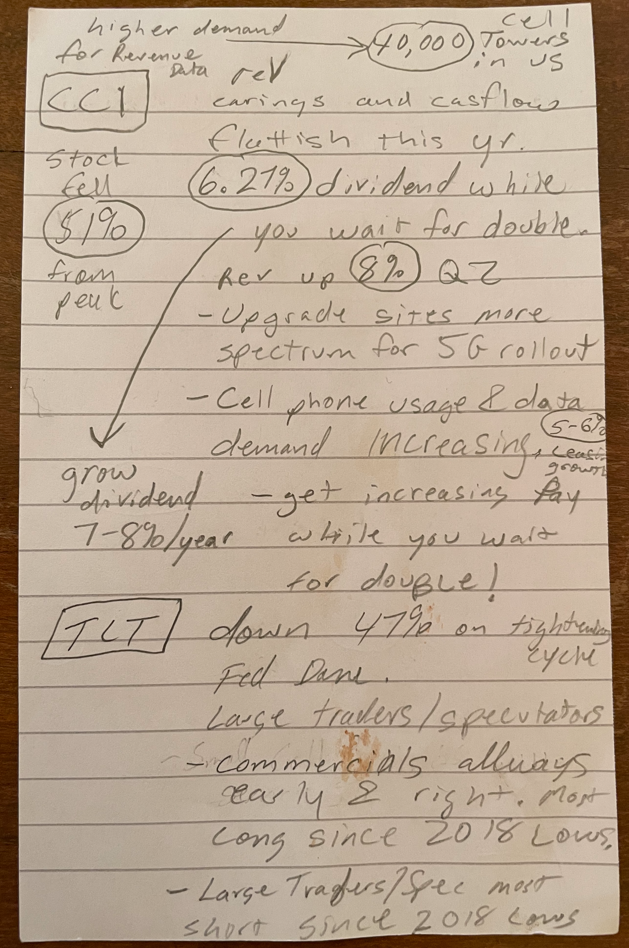 higher demand
for Revenue
Data
40,000
cell
Towers
in US
CCI
rev
earings and casflows
flattish this yr.
stock
fell
51%
from
peak
6.27% dividend while
you wait for double.
Rev up 8% Q2
- Upgrade sites more
spectrum for 5G rollout
- Cell phone usage & data
demand Increasing,
5-6%
growth
grow
dividend
7-8%/year
- get increasing Pay
while you wait
for double!
TLT
down 47% on tightening
cycle
Fed Done.
Large traders/specutators
- commercials allways
early & right. Most
Long since 2018 Lows.
- Large Traders/Spec most
short since 2018 Lows